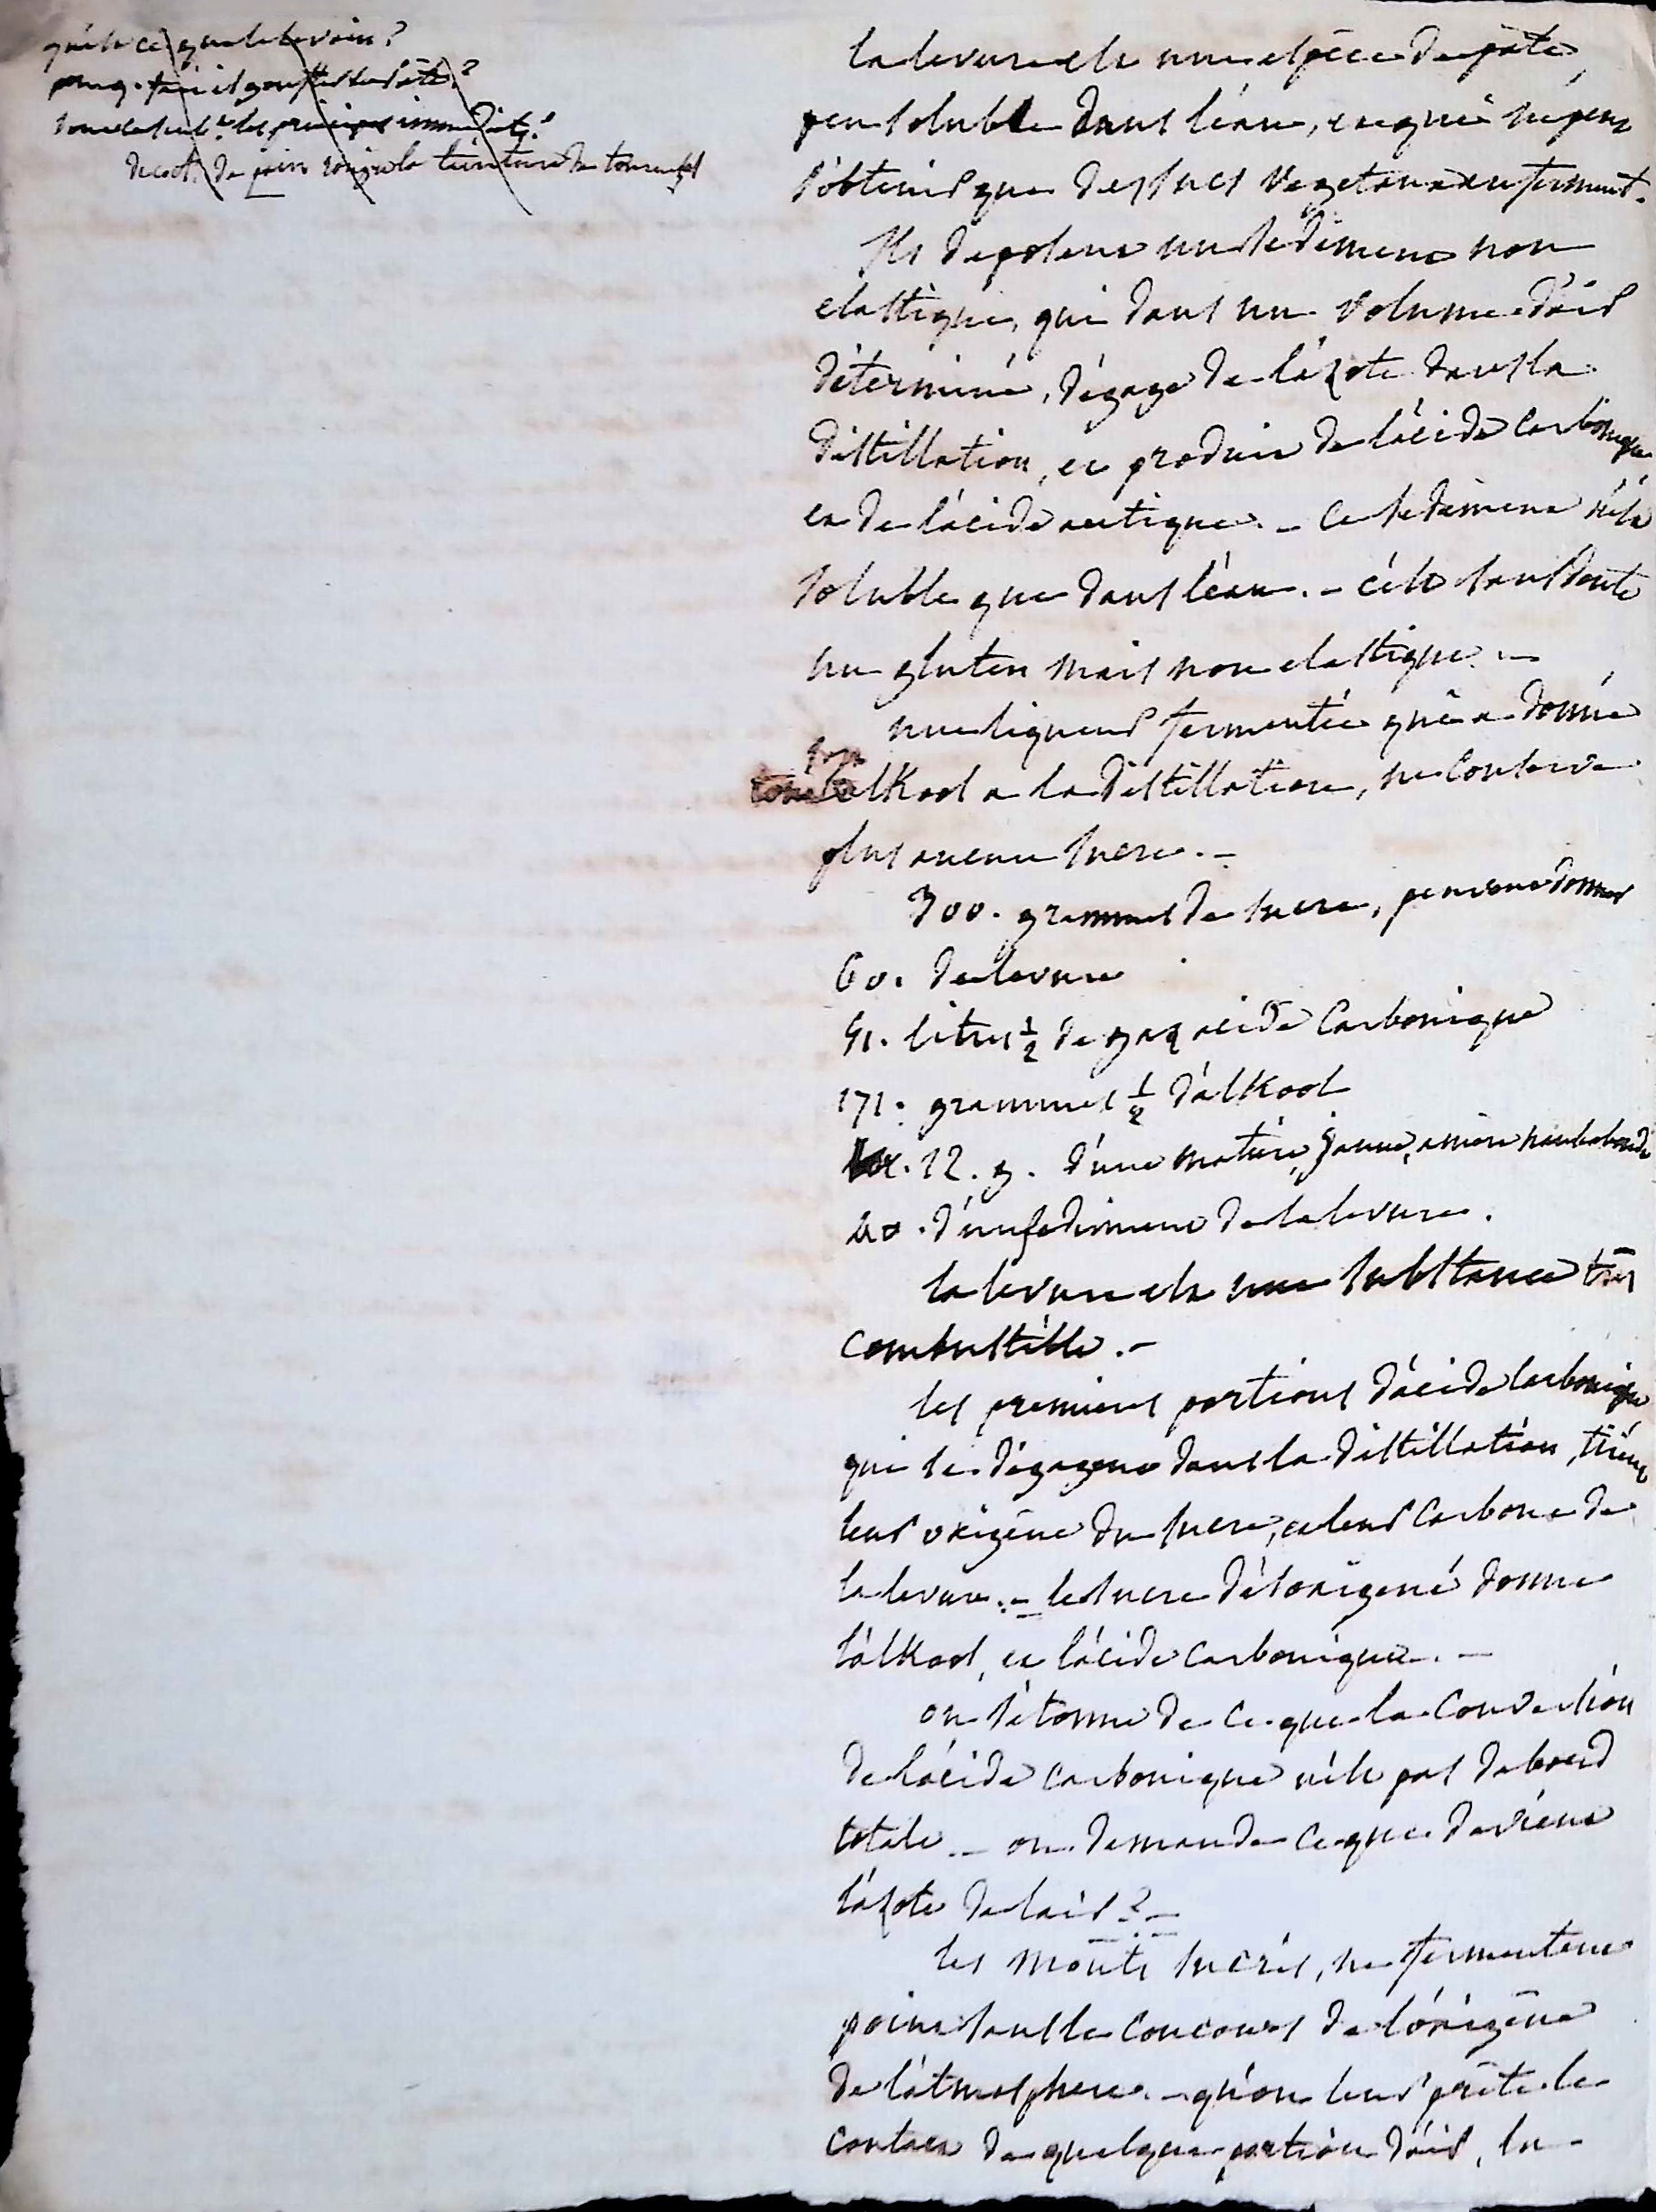 qu'est ce que le levain?
pourq. fait il gonfler la pâte?
sont ce seult. les principes immediats?
decoct. de pain rougit la teinture de tournesol
la levure est une espèce de pâte,
peu soluble dans l'eau, et qui ne peut
s'obtenir que des sucs vegetaux qui ferment.
Ils deposent un sediment non
elastique, qui dans un volume d'air
déterminé, dégage de l'azote dans la
distillation, et produit de l'acide carbonique
et de l'acide acetique. - Ce sediment n'est
soluble que dans l'eau. - c'est sans doute
un gluten mais non elastique. -
une liqueur fermentée qui a donné
tout l'alkool a la distillation, ne conserve
plus aucun sucre. -
300. grammes de sucre, peuvent donner
60. de levure
51. litres ½ de gaz acide Carbonique
171. grammes ½ d'alkool
12. g. d'une matière, jaune, amère nauseabonde
40. d'un sediment de la levure.
la levure est une substance très
combustible. -
les premieres portions d'acide carbonique
qui se dégagent dans la distillation, tirent
leur oxigène du sucre, et leur carbone de
la levure. - le sucre désoxigené donne
l'alkool, et l'acide carbonique. -
on s'étonne de ce que la conversion
de l'acide carbonique n'est pas d'abord
totale. - on demande ce que devient
l'azote de l'air? -
les moûts sucrés, ne fermentent
point sans le concours de l'oxigène
de l'atmosphere. - qu'on leur prête le
contact de quelque portion d'air, la